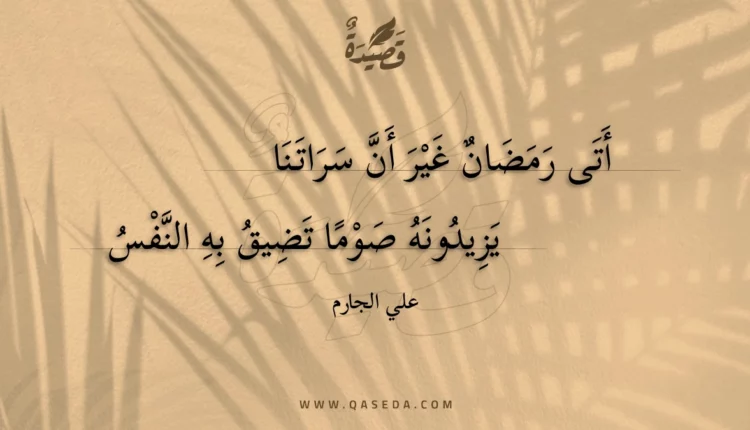 قَصِيدَةٌ
أَتَى رَمَضَانٌ غَيْرَ أَنَّ سَرَاتَنَا
يَزِيدُونَهُ صَوْمًا تَضِيقُ بِهِ النَّفْسُ
علي الجارم
WWW.QASEDA.COM